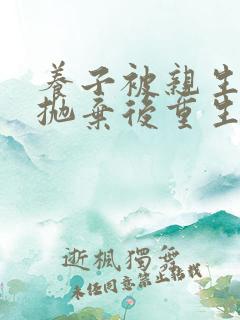 養子被親生
拋棄後重生
逝楓獨舞
未經同意禁止轉載